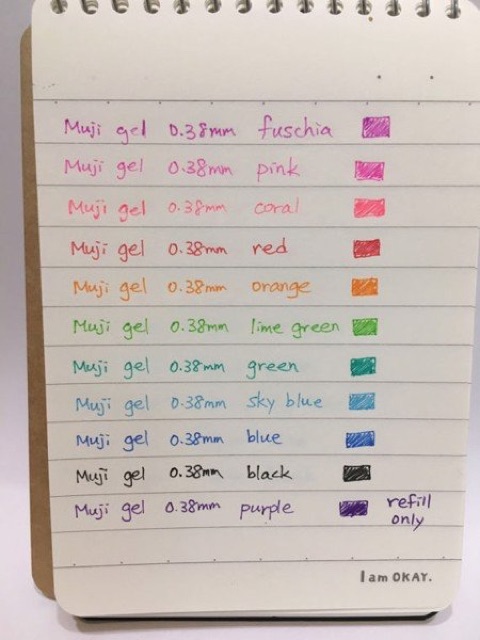 Muji gel 0.38mm fuschia
Muji gel 0.38mm pink
Muji gel 0.38mm coral
Muji gel 0.38mm red
Muji gel 0.38mm orange
Muji gel 0.38mm lime green
Muji gel 0.38mm green
Muji gel 0.38mm sky blue
Muji gel 0.38mm blue
Muji gel 0.38mm black
Muji gel 0.38mm purple refill only
I am OKAY.